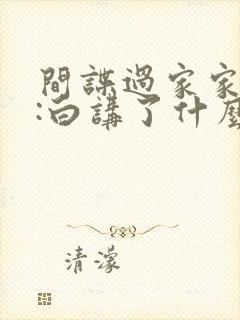 間諜過家家
:白講了什麼
清濛